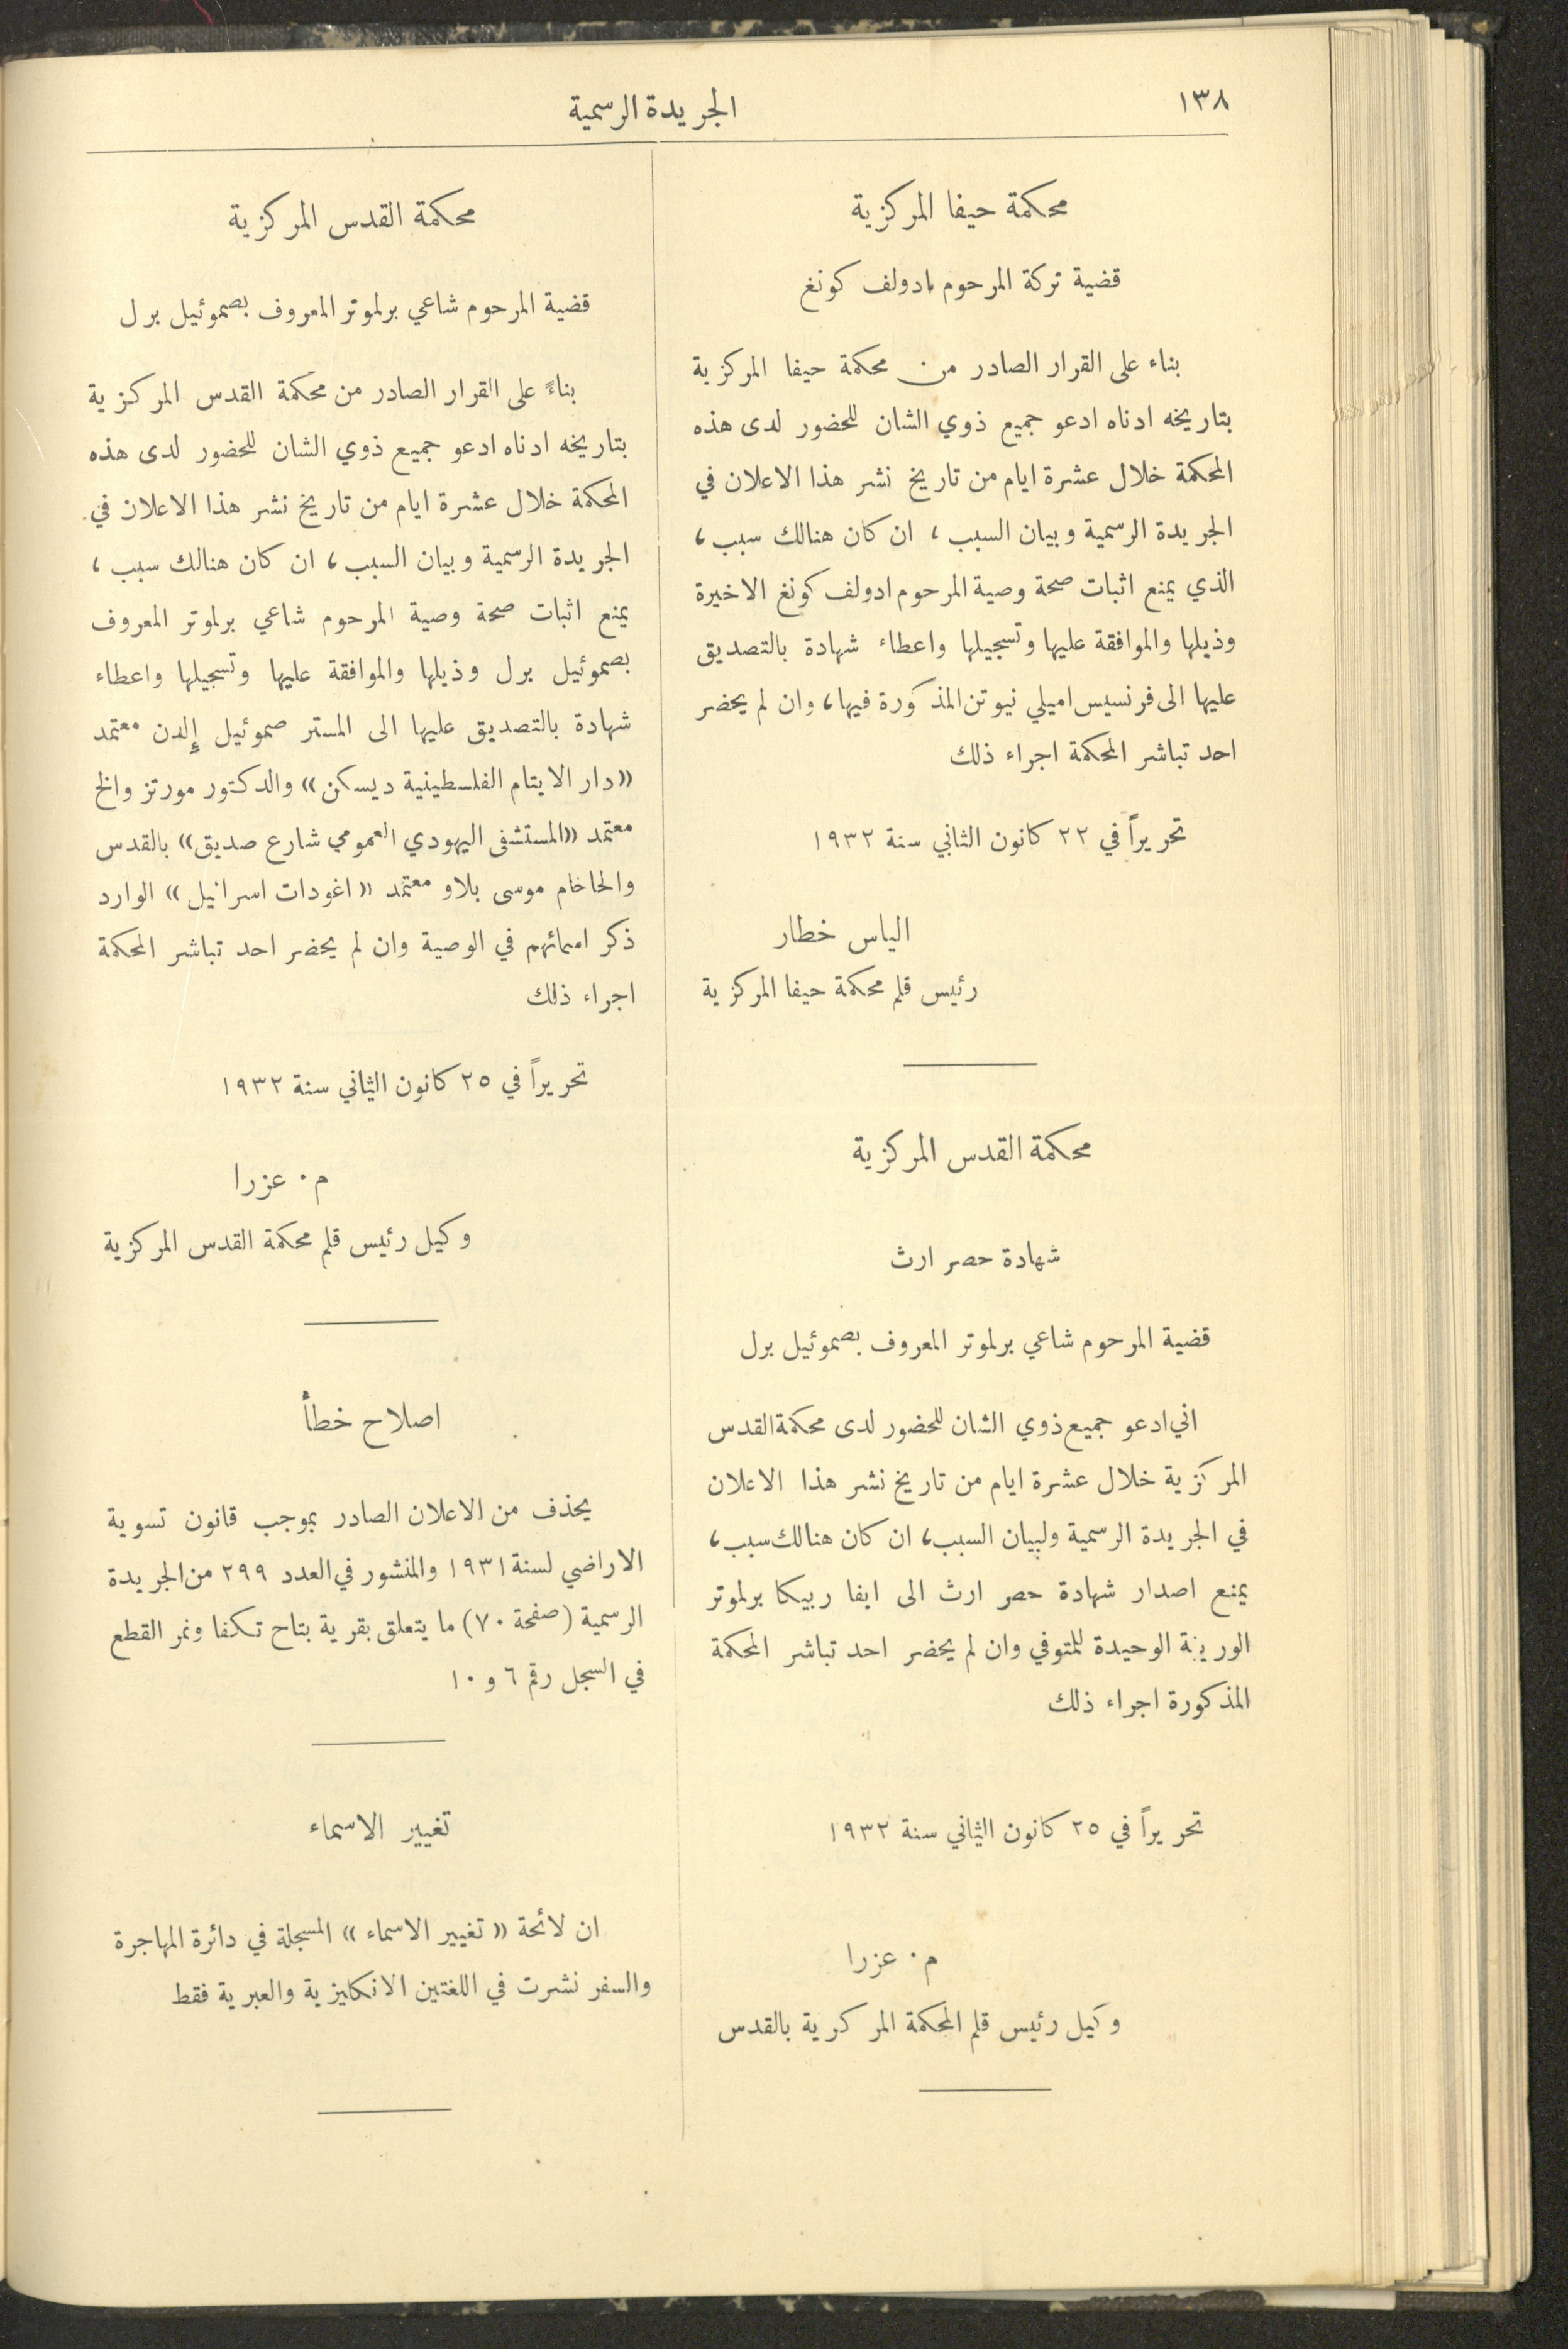 ١٣٨
الجريدة الرسمية
محكمة حيفا المركزية
قضية تركة المرحوم ادولف كونغ
بناء على القرار الصادر من محكمة حيفا المركزية
بتاريخه ادناه ادعو جميع ذوي الشان للحضور لدى هذه
المحكمة خلال عشرة ايام من تاريخ نشر هذا الاعلان في
الجريدة الرسمية وبيان السبب ، ان كان هنالك سبب ،
الذي يمنع اثبات صحة وصية المرحوم ادولف كونغ الاخيرة
وذيلها والموافقة عليها وتسجيلها واعطاء شهادة بالتصديق
عليها الى فرنسيس اميلي نيوتن المذكورة فيها ، وان لم يحضر
احد تباشر المحكمة اجراء ذلك
تحريراً في ٢٢ كانون الثاني سنة ١٩٣٢
الياس خطار
رئيس قلم محكمة حيفا المركزية
محكمة القدس المركزية
شهادة حصر ارث
قضية المرحوم شاعي برلموتر المعروف بصموئيل برل
اني ادعو جميع ذوي الشان للحضور لدى محكمة القدس
المركزية خلال عشرة ايام من تاريخ نشر هذا الاعلان
في الجريدة الرسمية ولبيان السبب ، ان كان هنالك سبب ،
يمنع اصدار شهادة حصر ارث الى ايفا ربيكا برلموتر
الوريثة الوحيدة للمتوفي وان لم يحضر احد تباشر المحكمة
المذكورة اجراء ذلك
تحريراً في ٢٥ كانون الثاني سنة ١٩٣٢
م . عزرا
وكيل رئيس قلم المحكمة المركزية بالقدس
محكمة القدس المركزية
قضية المرحوم شاعي برلموتر المعروف بصموئيل برل
بناءً على القرار الصادر من محكمة القدس المركزية
بتاريخه ادناه ادعو جميع ذوي الشان للحضور لدى هذه
المحكمة خلال عشرة ايام من تاريخ نشر هذا الاعلان في
الجريدة الرسمية وبيان السبب ، ان كان هنالك سبب ،
يمنع اثبات صحة وصية المرحوم شاعي برلموتر المعروف
بصموئيل برل وذيلها والموافقة عليها وتسجيلها واعطاء
شهادة بالتصديق عليها الى المستر صموئيل إلدن معتمد
«دار الايتام الفلسطينية ديسكن» والدكتور مورتز والخ
معتمد «المستشفى اليهودي العمومي شارع صديق» بالقدس
والحاخام موسى بلاو معتمد «اغودات اسرائيل» الوارد
ذكر اسمائهم في الوصية وان لم يحضر احد تباشر المحكمة
اجراء ذلك
تحريراً في ٢٥ كانون الثاني سنة ١٩٣٢
م . عزرا
وكيل رئيس قلم محكمة القدس المركزية
اصلاح خطأ
يحذف من الاعلان الصادر بموجب قانون تسوية
الاراضي لسنة ١٩٣١ والمنشور في العدد ٢٩٩ من الجريدة
الرسمية (صفحة ٧٠) ما يتعلق بقرية بتاح تكفا ونمر القطع
في السجل رقم ٦ و ١٠
تغيير الاسماء
ان لائحة «تغيير الاسماء» المسجلة في دائرة المهاجرة
والسفر نشرت في اللغتين الانكليزية والعبرية فقط